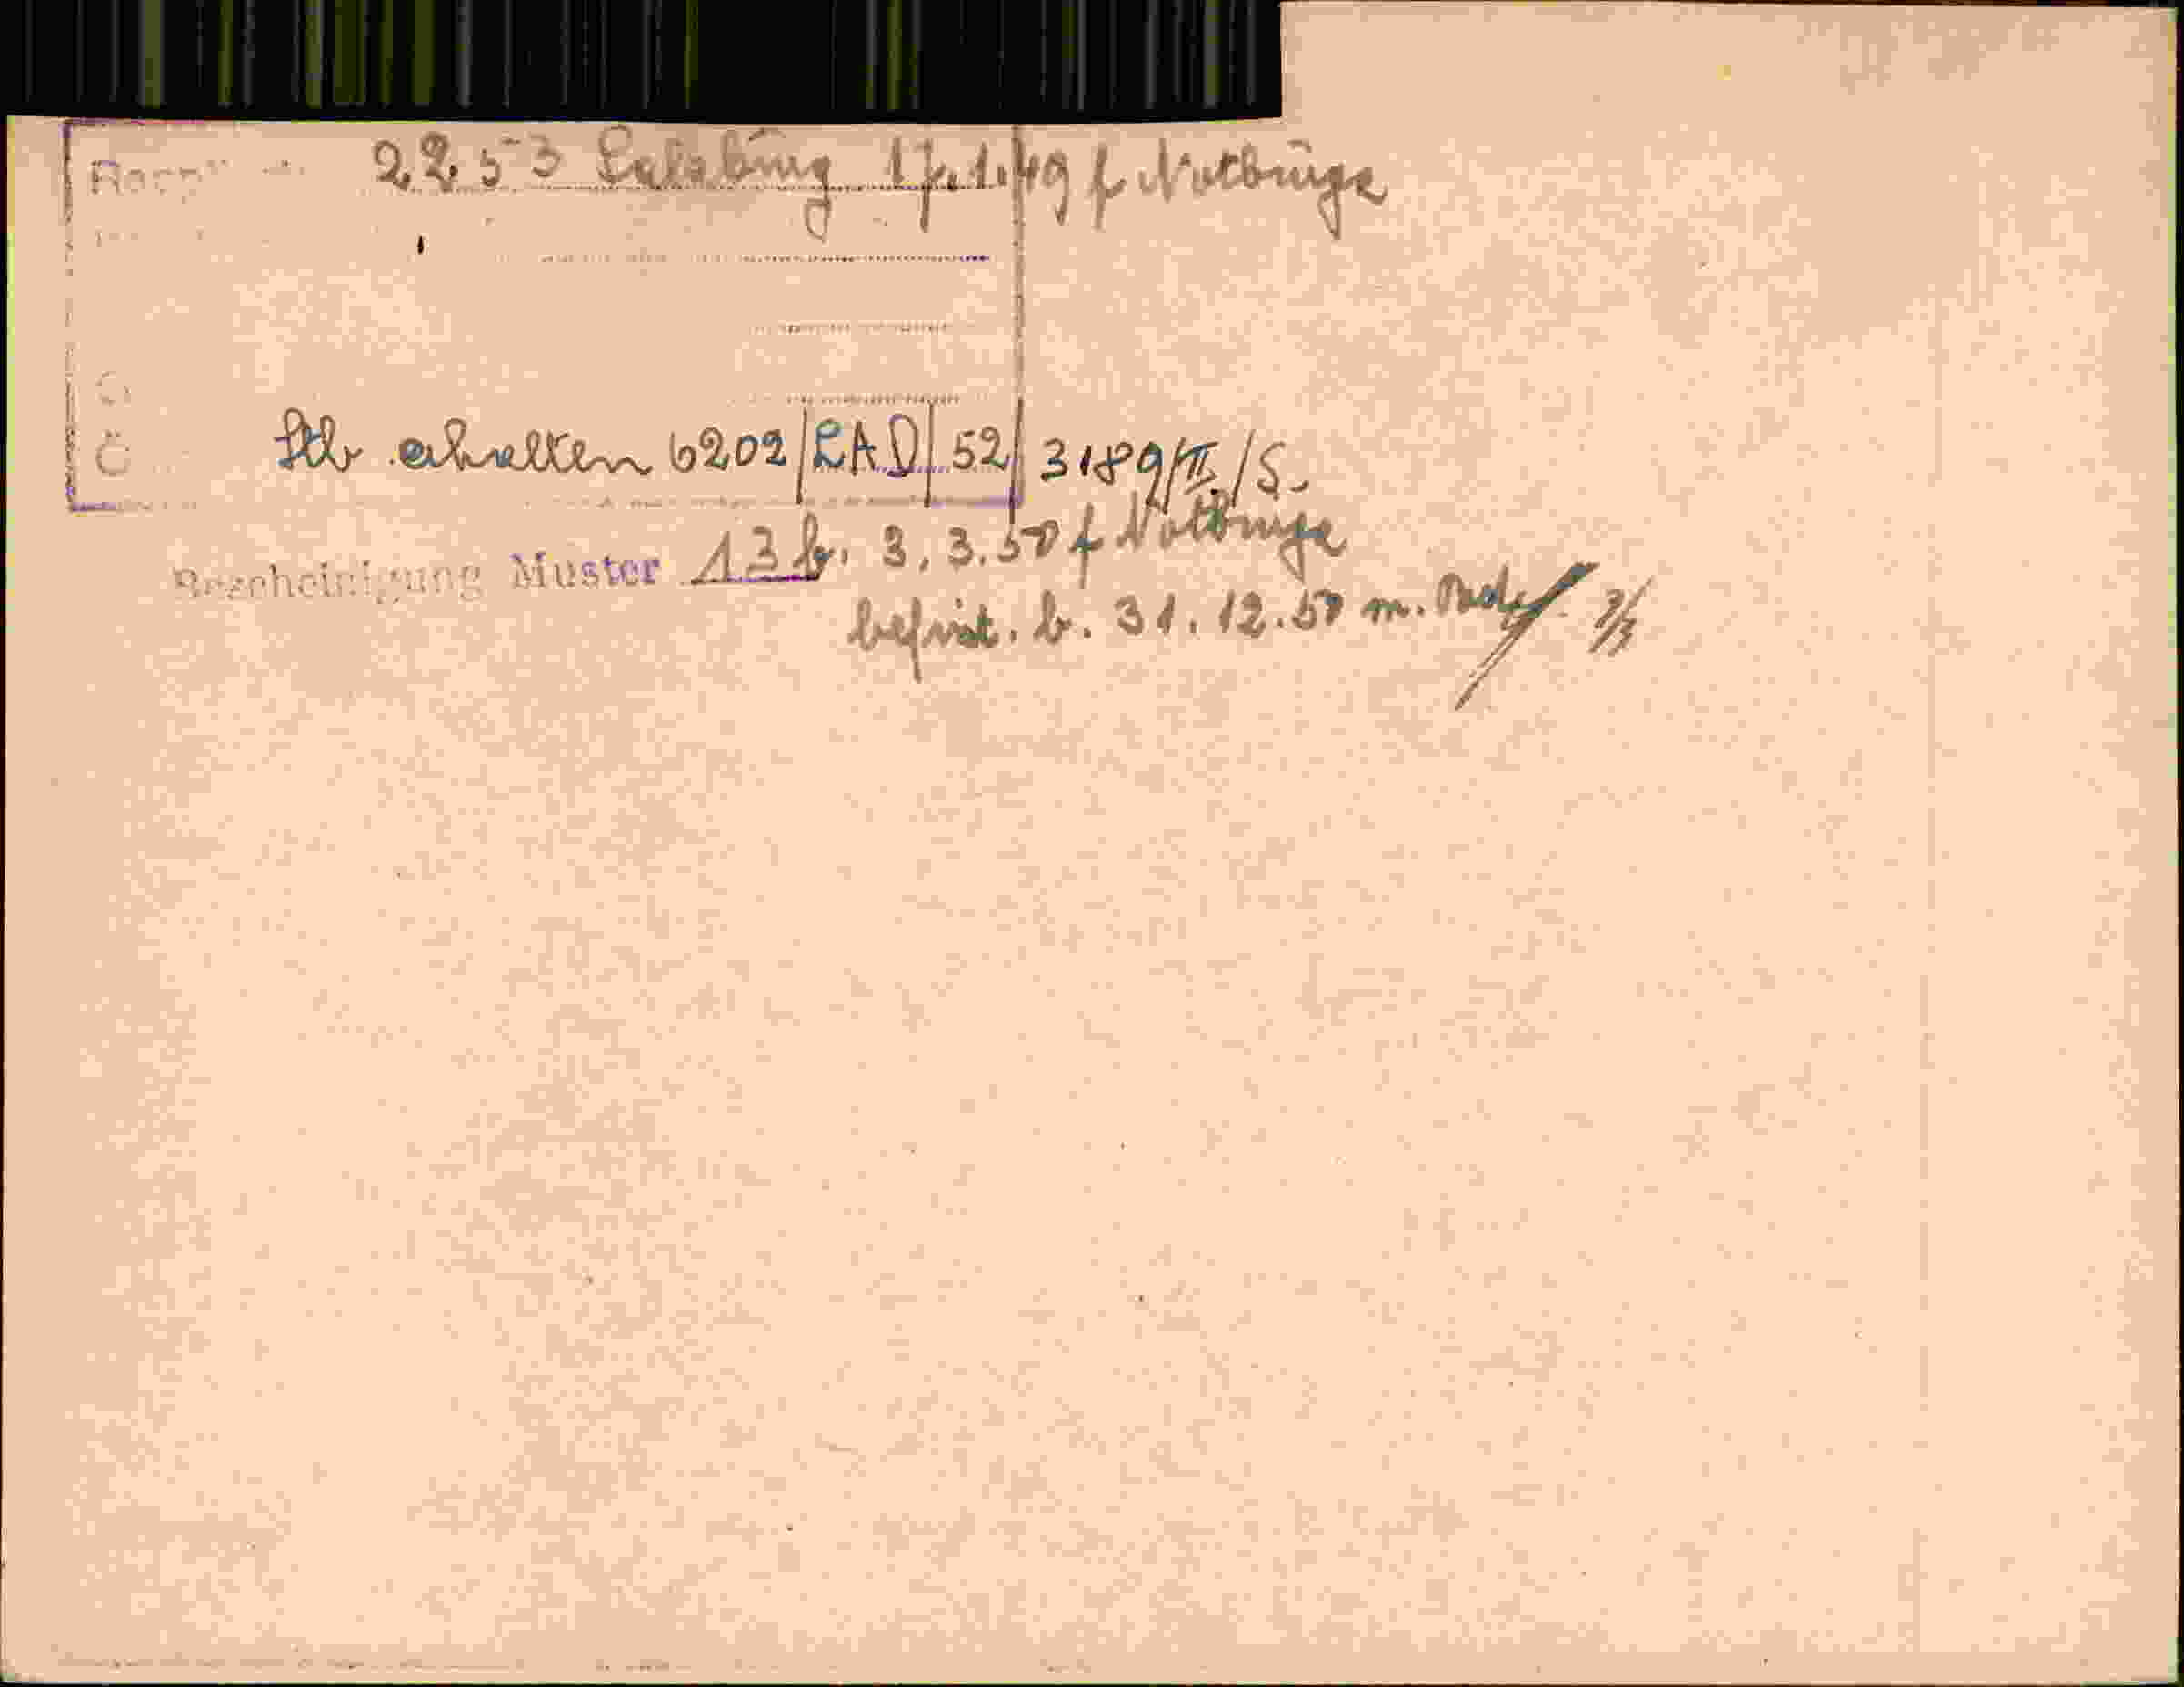 2253 Salzburg 17.1.49 f. Notburga
Stb erhalten 6202/RAD/52/3189/II/S.
Bescheinigung Muster 13b. 3.3.50 f Notburga
befrist. b. 31.12.50 m.